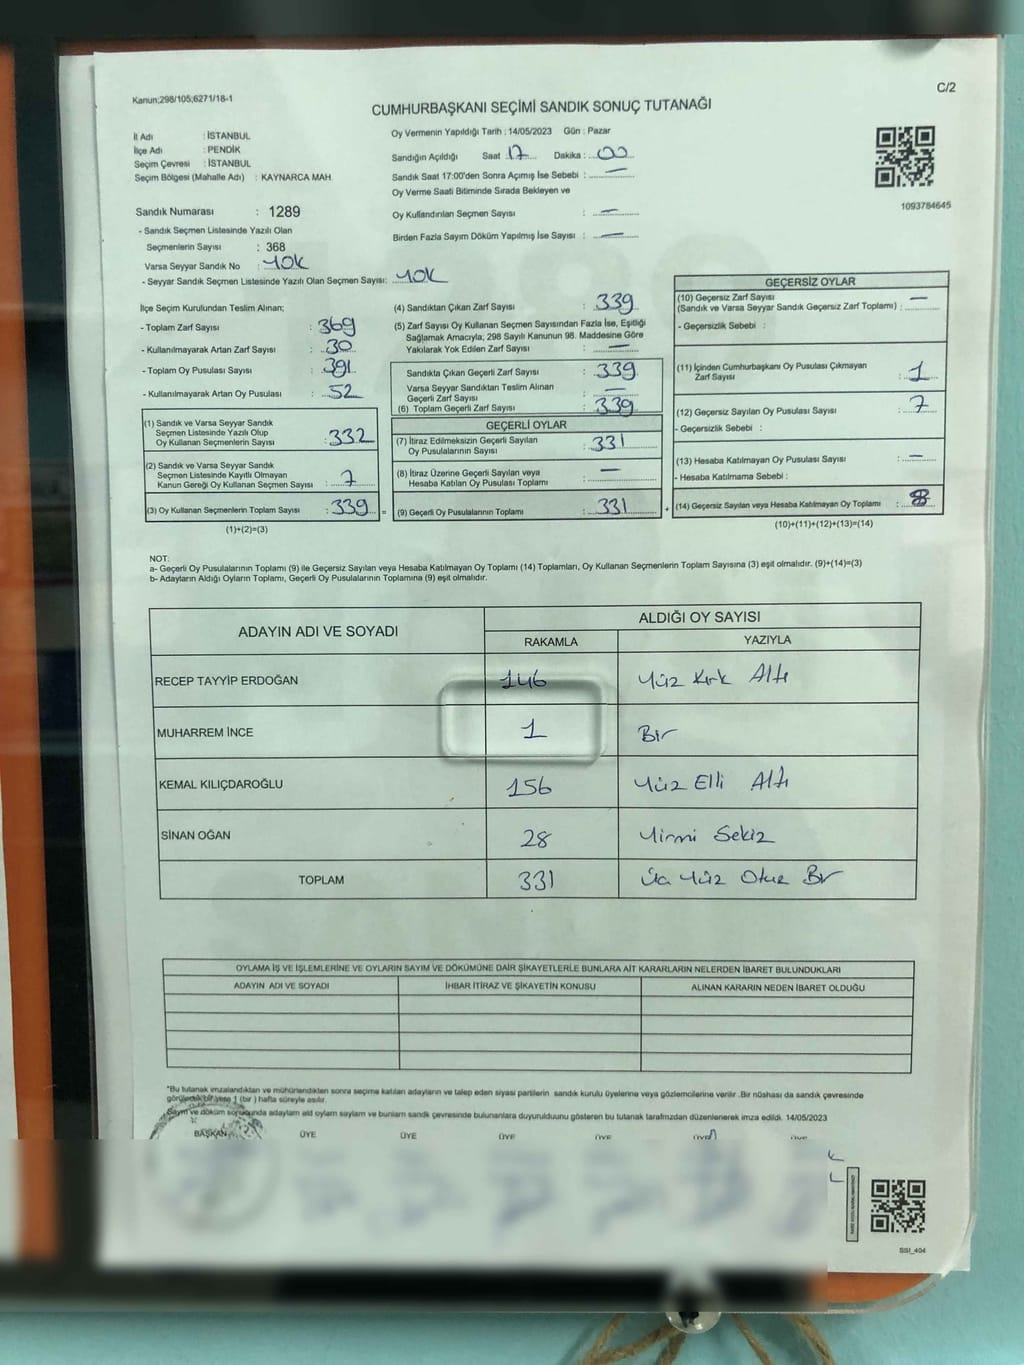 Kanun;298/105;6271/18-1
C/2
CUMHURBAŞKANI SEÇİMİ SANDIK SONUÇ TUTANAĞI
İl Adı : İSTANBUL
İlçe Adı : PENDİK
Seçim Çevresi : İSTANBUL
Seçim Bölgesi (Mahalle Adı) : KAYNARCA MAH.
Oy Vermenin Yapıldığı Tarih : 14/05/2023 Gün : Pazar
Sandığın Açıldığı Saat 17 Dakika : 00
Sandık Saat 17:00'den Sonra Açımış İse Sebebi : —
Oy Verme Saati Bitiminde Sırada Bekleyen ve
Oy Kullandırılan Seçmen Sayısı : —
Birden Fazla Sayım Döküm Yapılmış İse Sayısı : —
1093784645
Sandık Numarası : 1289
- Sandık Seçmen Listesinde Yazılı Olan
Seçmenlerin Sayısı : 368
Varsa Seyyar Sandık No : YOK
- Seyyar Sandık Seçmen Listesinde Yazılı Olan Seçmen Sayısı: YOK
İlçe Seçim Kurulundan Teslim Alınan;
- Toplam Zarf Sayısı : 369
- Kullanılmayarak Artan Zarf Sayısı : 30
- Toplam Oy Pusulası Sayısı : 391
- Kullanılmayarak Artan Oy Pusulası : 52
(1) Sandık ve Varsa Seyyar Sandık
Seçmen Listesinde Yazılı Olup
Oy Kullanan Seçmenlerin Sayısı : 332
(2) Sandık ve Varsa Seyyar Sandık
Seçmen Listesinde Kayıtlı Olmayan
Kanun Gereği Oy Kullanan Seçmen Sayısı : 7
(3) Oy Kullanan Seçmenlerin Toplam Sayısı : 339 =
(1)+(2)=(3)
(4) Sandıktan Çıkan Zarf Sayısı : 339
(5) Zarf Sayısı Oy Kullanan Seçmen Sayısından Fazla İse, Eşitliği
Sağlamak Amacıyla; 298 Sayılı Kanunun 98. Maddesine Göre
Yakılarak Yok Edilen Zarf Sayısı : —
Sandıkta Çıkan Geçerli Zarf Sayısı : 339
Varsa Seyyar Sandıktan Teslim Alınan
Geçerli Zarf Sayısı : —
(6) Toplam Geçerli Zarf Sayısı : 339
GEÇERLİ OYLAR
(7) İtiraz Edilmeksizin Geçerli Sayılan
Oy Pusulalarının Sayısı : 331
(8) İtiraz Üzerine Geçerli Sayılan veya
Hesaba Katılan Oy Pusulası Toplamı : —
(9) Geçerli Oy Pusulalarının Toplamı : 331 +
GEÇERSİZ OYLAR
(10) Geçersiz Zarf Sayısı
(Sandık ve Varsa Seyyar Sandık Geçersiz Zarf Toplamı) : —
- Geçersizlik Sebebi :
(11) İçinden Cumhurbaşkanı Oy Pusulası Çıkmayan
Zarf Sayısı : 1
(12) Geçersiz Sayılan Oy Pusulası Sayısı : 7
- Geçersizlik Sebebi :
(13) Hesaba Katılmayan Oy Pusulası Sayısı : —
- Hesaba Katılmama Sebebi :
(14) Geçersiz Sayılan veya Hesaba Katılmayan Oy Toplamı : 8
(10)+(11)+(12)+(13)=(14)
NOT:
a- Geçerli Oy Pusulalarının Toplamı (9) ile Geçersiz Sayılan veya Hesaba Katılmayan Oy Toplamı (14) Toplamları, Oy Kullanan Seçmenlerin Toplam Sayısına (3) eşit olmalıdır. (9)+(14)=(3)
b- Adayların Aldığı Oyların Toplamı, Geçerli Oy Pusulalarının Toplamına (9) eşit olmalıdır.
ADAYIN ADI VE SOYADI ALDIĞI OY SAYISI
RAKAMLA YAZIYLA
RECEP TAYYİP ERDOĞAN 146 Yüz Kırk Altı
MUHARREM İNCE 1 Bir
KEMAL KILIÇDAROĞLU 156 Yüz Elli Altı
SİNAN OĞAN 28 Yirmi Sekiz
TOPLAM 331 Üç Yüz Otuz Bir
OYLAMA İŞ VE İŞLEMLERİNE VE OYLARIN SAYIM VE DÖKÜMÜNE DAİR ŞİKAYETLERLE BUNLARA AİT KARARLARIN NELERDEN İBARET BULUNDUKLARI
ADAYIN ADI VE SOYADI İHBAR İTİRAZ VE ŞİKAYETİN KONUSU ALINAN KARARIN NEDEN İBARET OLDUĞU
*Bu tutanak imzalandıktan ve mühürlendikten sonra seçime katılan adayların ve talep eden siyasi partilerin sandık kurulu üyelerine veya gözlemcilerine verilir .Bir nüshası da sandık çevresinde
görülecek bir yere 1 (bir ) hafta süreyle asılır.
Sayım ve döküm sonucunda adayların oyların sayları ve bunların sandık çevresinde bulunanlara duyurulduunu gösteren bu tutanak tarafımızdan düzenlenerek imza edildi. 14/05/2023
BAŞKAN ÜYE ÜYE ÜYE ÜYE ÜYE ÜYE
SSI_404